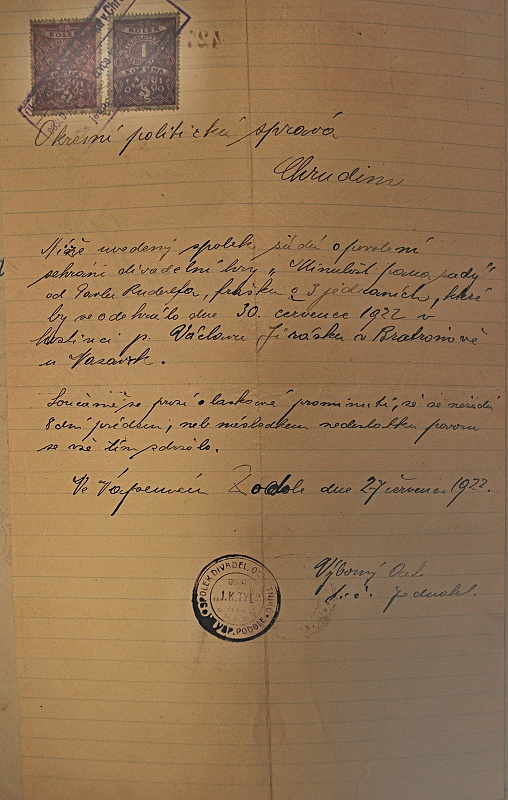 KOLEK
KOLEK
1
KORUNA
Okresní politická správa
Chrudim
Níže uvedený spolek žádá o povolení
sehrání divadelní hry „Minulost pana rady"
od Pavla Rudolfa, fraška o 3 jednáních, které
by se odehrálo dne 30. července 1922 v
hostinci p. Václava Jiráska v Bratronově
u Nasavrk.
Současně se prosí o laskavé prominutí, že se nežádá
8 dní předem, neb následkem nedostatku
se vše tím zdrželo.
Ve Vápenném Podole dne 27 července 1922.
SPOLEK DIVADEL. OCHOTNÍKŮ
„J.K.TYL"
VÁP. PODOLE
Výborný
jednatel.